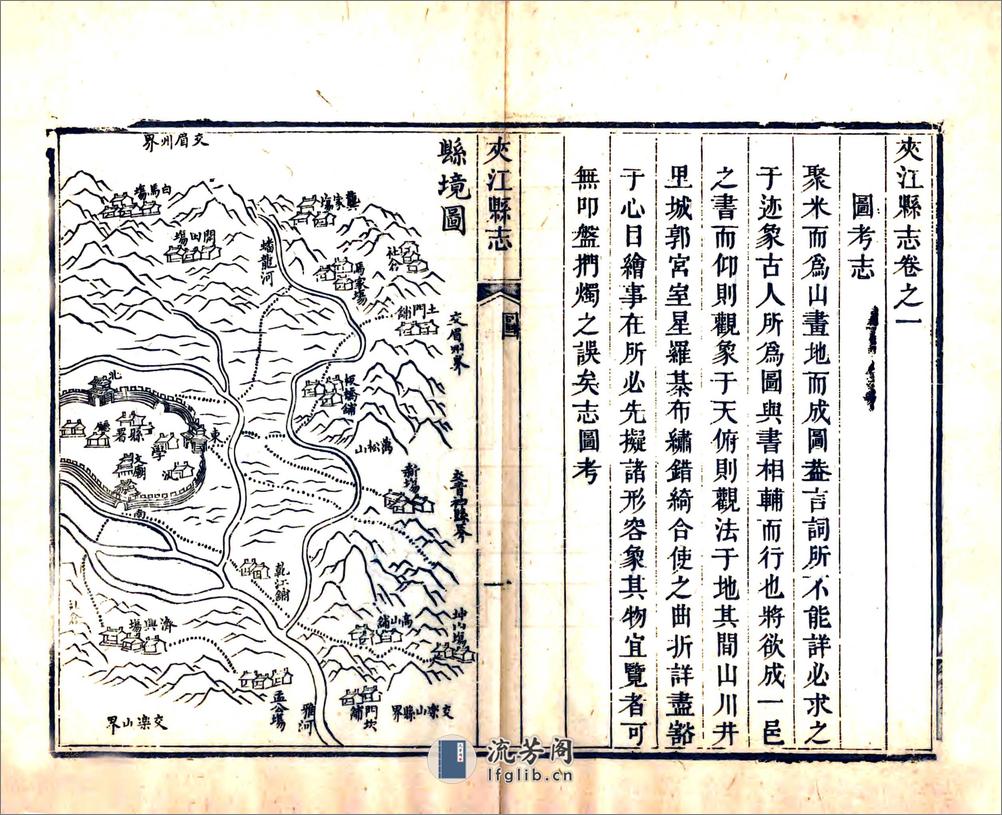 夾江縣志卷之一
圖考志
聚米而為山畫地而成圖葢言詞所不能詳必求之
于迹象古人所為圖與書相輔而行也將欲成一邑
之書而仰則觀象于天俯則觀法于地其間山川井
里城郭宮室星羅棊布繡錯綺合使之曲折詳盡豁
于心目繪事在所必先擬諸形容象其物宜覽者可
無叩盤捫燭之誤矣志圖考
夾江縣志
圖
一
縣境圖
交眉州界
龔家場
蟠龍河
白馬場
馬家場
社倉
土門舖
交眉州界
板橋舖
萬松山
新場
北
縣署
東
學
文廟
汛
南
乾江舖
高山舖
濟興場
孟公場
雅河
門坎舖
交樂山縣界
交樂山界
流芳阁
lfglib.cn